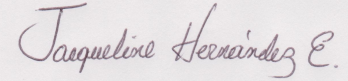 Jacqueline Hernández E.